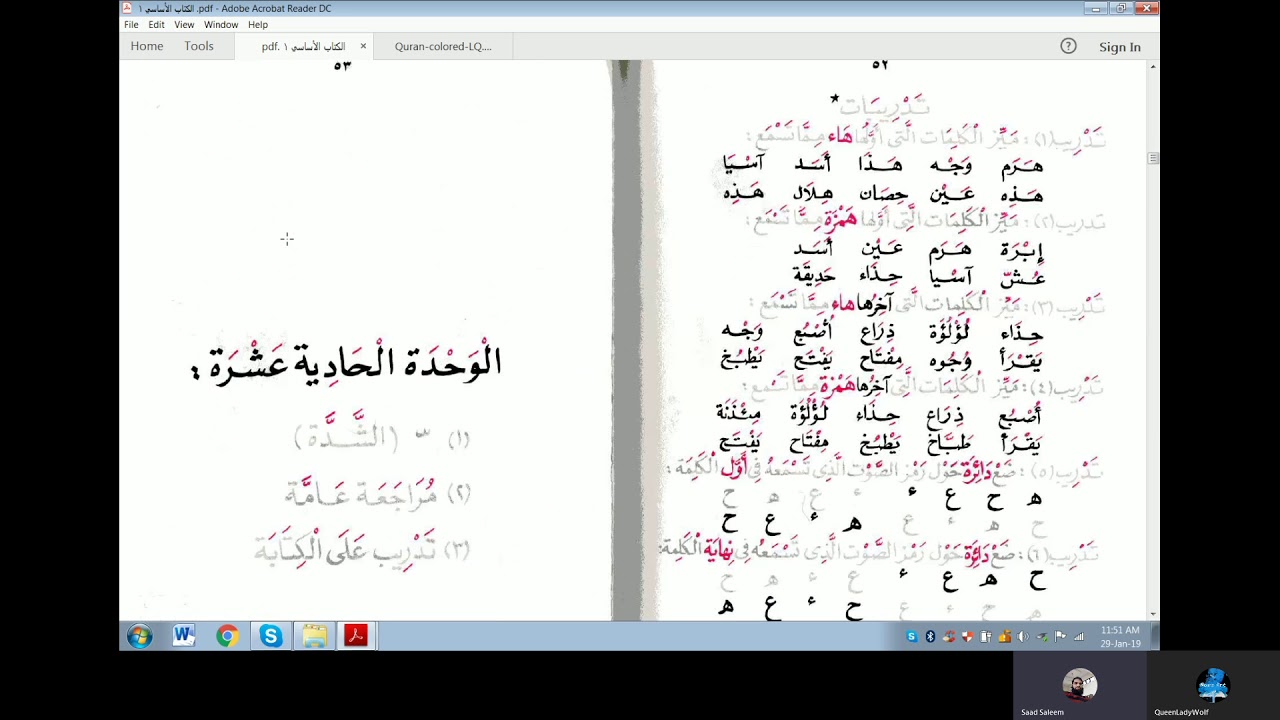 الكتاب الأساسي ١ .pdf - Adobe Acrobat Reader DC
File Edit View Window Help
Home Tools pdf. ١ الكتاب الأساسي × Quran-colored-LQ.... ? Sign In
٥٢
تَدْرِيبَات *
تَدْرِيب (١) : مَيِّز الْكَلِمَات الَّتِي أَوَّلُهَا هَاء مِمَّا تَسْمَع :
هَرَم وَجْه هَذَا أَسَد آسْيَا
هَذِه عَيْن حِصَان هِلَال هَذِه
تدريب (٢) : مَيِّز الْكَلِمَات الَّتِي أَوَّلُهَا هَمْزَة مِمَّا تَسْمَع :
إِبْرَة هَرَم عَيْن أَسَد
عُشّ آسْيا حِذَاء حَدِيقَة
تَدْرِيب (٣) : مَيِّز الْكَلِمَات الَّتِي آخِرُها هاء مِمَّا تَسْمَع :
حِذَاء لُؤْلُؤَة ذِرَاع أُصْبُع وَجْه
يَقْرَأ وُجُوه مِفْتَاح يَفْتَح يَطْبُخ
تَدْرِيب (٤) : مَيِّز الْكَلِمَات الَّتِي آخِرُها هَمْزَة مِمَّا تَسْمَع :
أُصْبُع ذِرَاع حِذَاء لُؤْلُؤَة مِئْذَنَة
يَقْرَأ طَبَّاخ يَطْبُخ مِفْتَاح يَفْتَح
تَدْرِيب (٥) : ضَعْ دَائِرَة حَوْل رَمْز الصَّوْت الَّذِي تَسْمَعُهُ فِي أَوَّل الْكَلِمَة :
ه ح ع ء ع ه ح
ح ه ء ع ه ء ع ح
تَدْرِيب (٦) : ضَعْ دَائِرَة حَوْل رَمْز الصَّوْت الَّذِي تَسْمَعُه فِي نِهايَة الْكَلِمَة:
ح ه ع ء ع ء ه ح
ه ح ء ع ح ء ع ه
٥٣
الْوَحْدَة الْحَادِية عَشْرَة :
(١) ــّ (الشَّدَّة)
(٢) مُرَاجَعَة عَامَّة
(٣) تَدْرِيب عَلَى الْكِتَابَة
11:51 AM
29-Jan-19
Saad Saleem
QueenLadyWolf